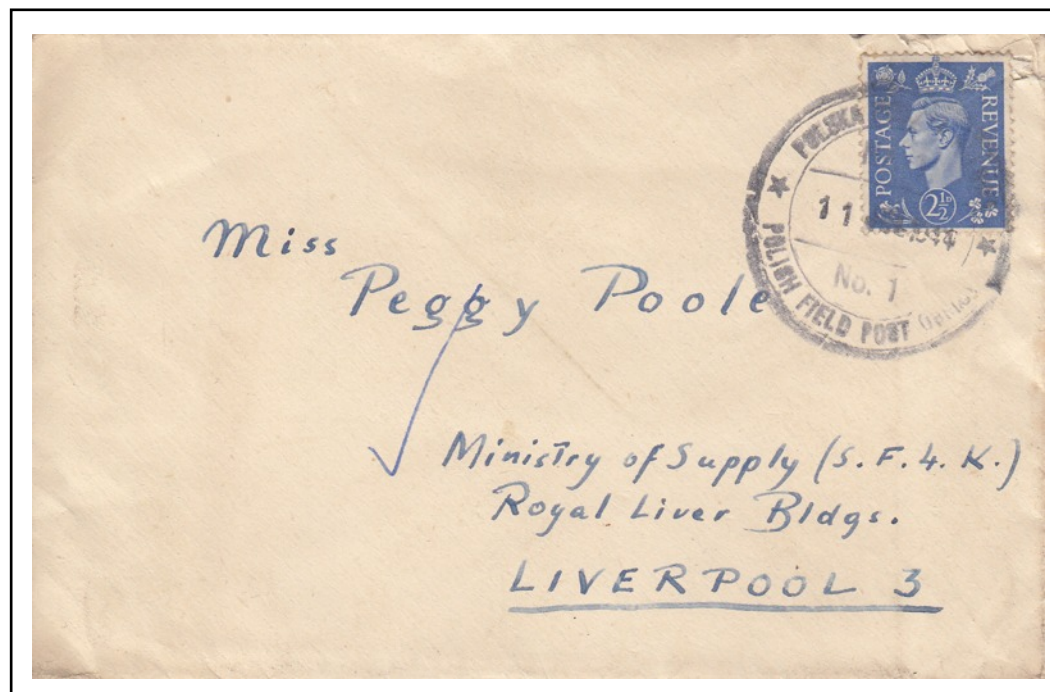 POSTAGE REVENUE
2½D
POLSKA
11 1944
No. 1
POLISH FIELD POST OFFICE
Miss
Peggy Poole
Ministry of Supply (S. F. 4. K.)
Royal Liver Bldgs.
LIVERPOOL 3